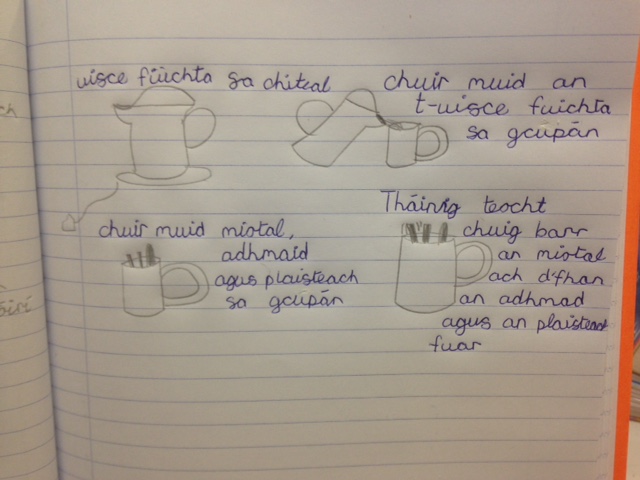 uisce fiuchta sa chiteal
chuir muid an
t-uisce fuichta
sa gcupán
chuir muid miotal,
adhmaid
agus plaisteach
sa gcupán
Tháinig teocht
chuig barr
an miotal
ach d'fhan
an adhmad
agus an plaisteach
fuar